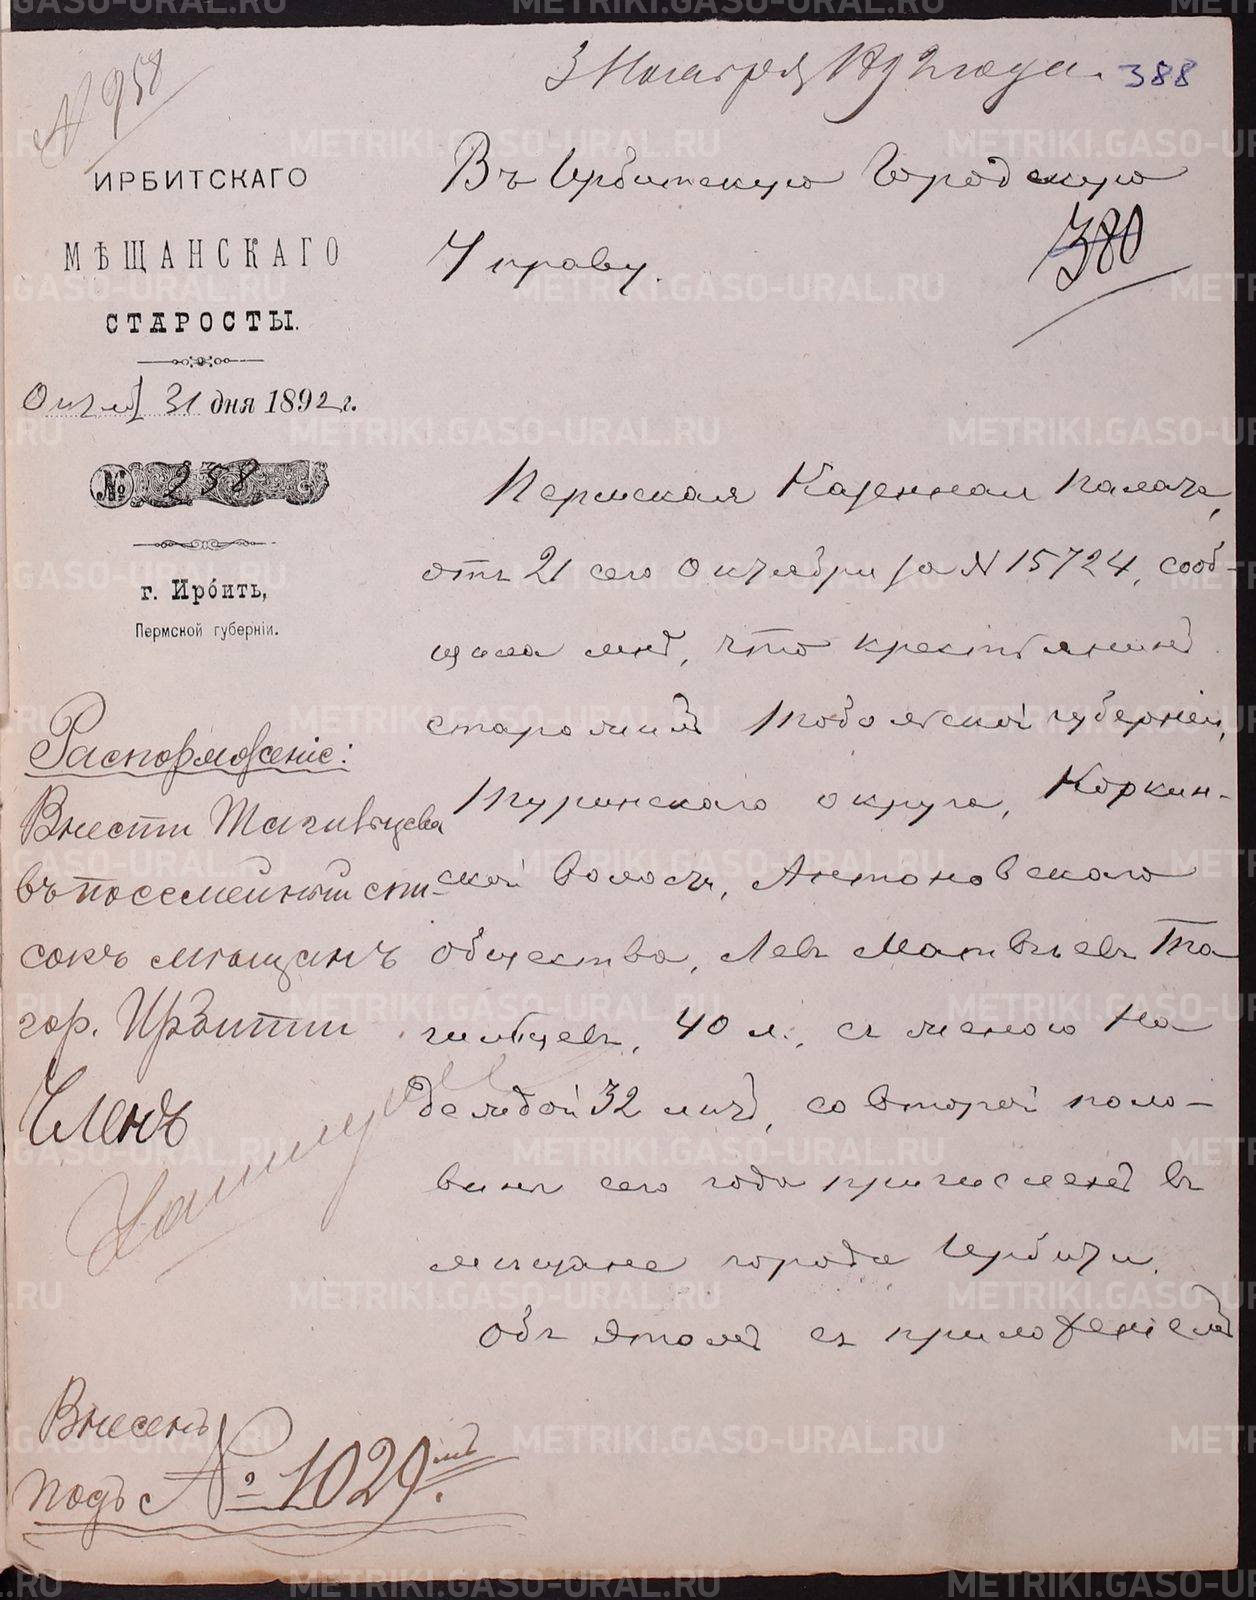 № 958
3 Ноября 1892 года.
388
ИРБИТСКАГО
МѢЩАНСКАГО
СТАРОСТЫ.
Октяб 31 дня 1892 г.
№ 258
г. Ирбитъ,
Пермской губерніи.
Въ Ирбитскую Городскую
Управу.
380
Пермская Казенная Палата,
отъ 21 сего Октября за № 15724, сооб-
щила мнѣ, что крестьянинъ
старожилъ Тобольской губерніи,
Туринскаго округа, Коркин-
ской волости, Антоновскаго
общества, Левъ Матвѣевъ Та
гильцевъ, 40 л., съ женою На
деждой 32 лѣтъ, со второй поло-
вины сего года причисленъ въ
мѣщане города Ирбити.
Объ этомъ съ приложеніемъ
Распоряженіе:
Внести Тагильцева
въ посемейный спи-
сокъ мѣщанъ
гор. Ирбити
Членъ
Внесенъ
подъ № 1029.мъ
METRIKI.GASO-URAL.RU